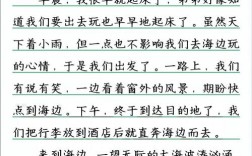 早晨，我很早就起床了，弟弟好像知
道我们要出去玩也早早地起床了。虽然天
下着小雨，但一点也不影响我们去海边玩
的心情，于是我们出发了。一路上，我们
有说有笑，一边看着窗外的风景，期盼快
点到海边。下午，终于到达目的地了，我
们把行李放到酒店后就直奔海边而去。
来到海边，一望无际的大海波涛汹涌